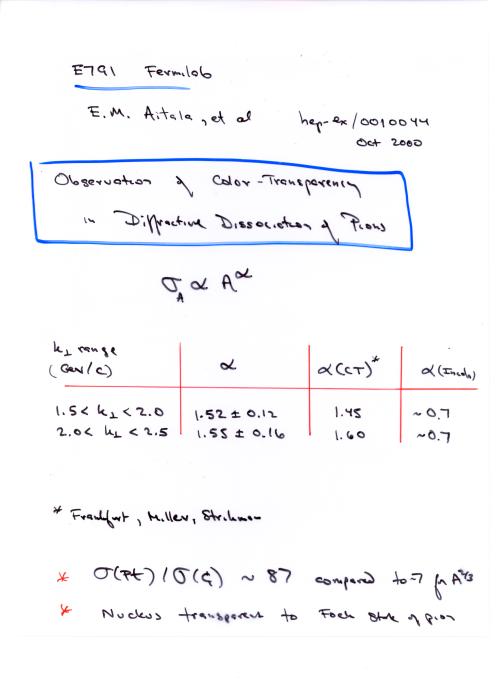 E791 Fermilab
E.M. Aitala, et al hep-ex/0010044
Oct 2000
Observation of Color-Transparency
in Diffractive Dissociation of Pions
σ_A ∝ A^α
k⊥ range
(GeV/c) α α(CT)* α(Incoh)
1.5 < k⊥ < 2.0 1.52 ± 0.12 1.45 ~0.7
2.0 < k⊥ < 2.5 1.55 ± 0.16 1.60 ~0.7
* Frankfurt, Miller, Strikman
* σ(Pt)/σ(C) ~ 87 compared to 7 for A^2/3
* Nucleus transparent to Fock state of pion